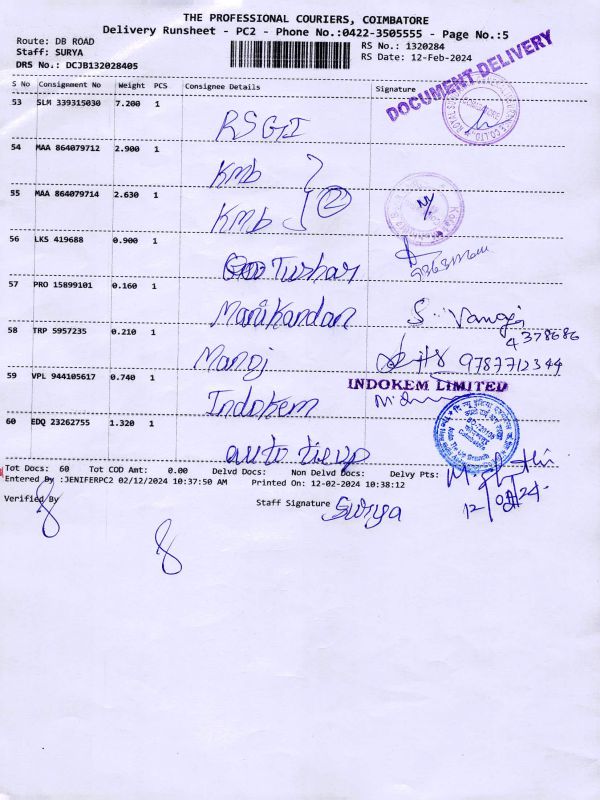 THE PROFESSIONAL COURIERS, COIMBATORE
Delivery Runsheet - PC2 - Phone No.:0422-3505555 - Page No.:5
Route: DB ROAD
Staff: SURYA
DRS No.: DCJB132028405
RS No.: 1320284
RS Date: 12-Feb-2024
DOCUMENT DELIVERY
S No Consignment No Weight PCS Consignee Details Signature
53 SLM 339315030 7.200 1
RSGI
54 MAA 864079712 2.900 1
Kmb
55 MAA 864079714 2.630 1
Kmb 2
56 LKS 419688 0.900 1
Tushar
57 PRO 15899101 0.160 1
Manikandan S. 
58 TRP 5957235 0.210 1
Manoj 9787712344
59 VPL 944105617 0.740 1
INDOKEM LIMITED
Indokem
60 EDQ 23262755 1.320 1
auto tieup
Tot Docs: 60 Tot COD Amt: 0.00 Delvd Docs: Non Delvd Docs: Delvy Pts:
Entered By :JENIFERPC2 02/12/2024 10:37:50 AM Printed On: 12-02-2024 10:38:12
Verified By Staff Signature Surya